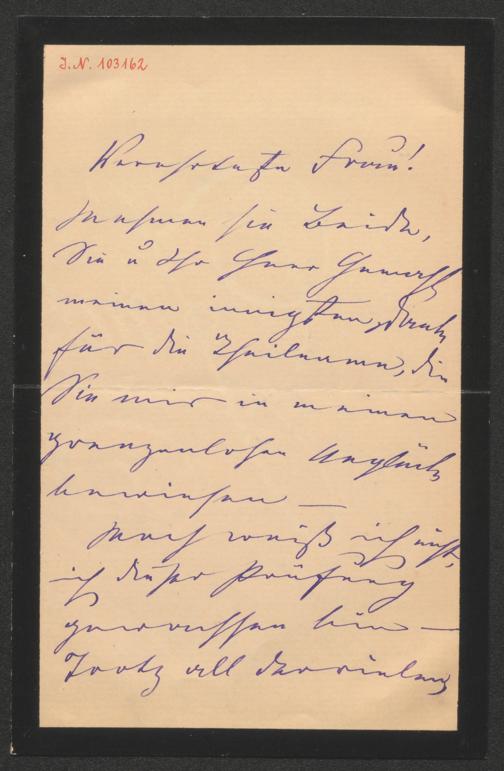 J.N. 103162
Verehrteste Frau!
Nehmen sie Beide,
Sie u Ihr Herr Gemahl
meinen innigsten Dank
für die Theilname, die
Sie mir in meinem
grenzenlosen Unglück
bewiesen —
Noch weiß ich nicht,
ich dieser Prüfung
gewachsen bin —
Trotz all der vielen